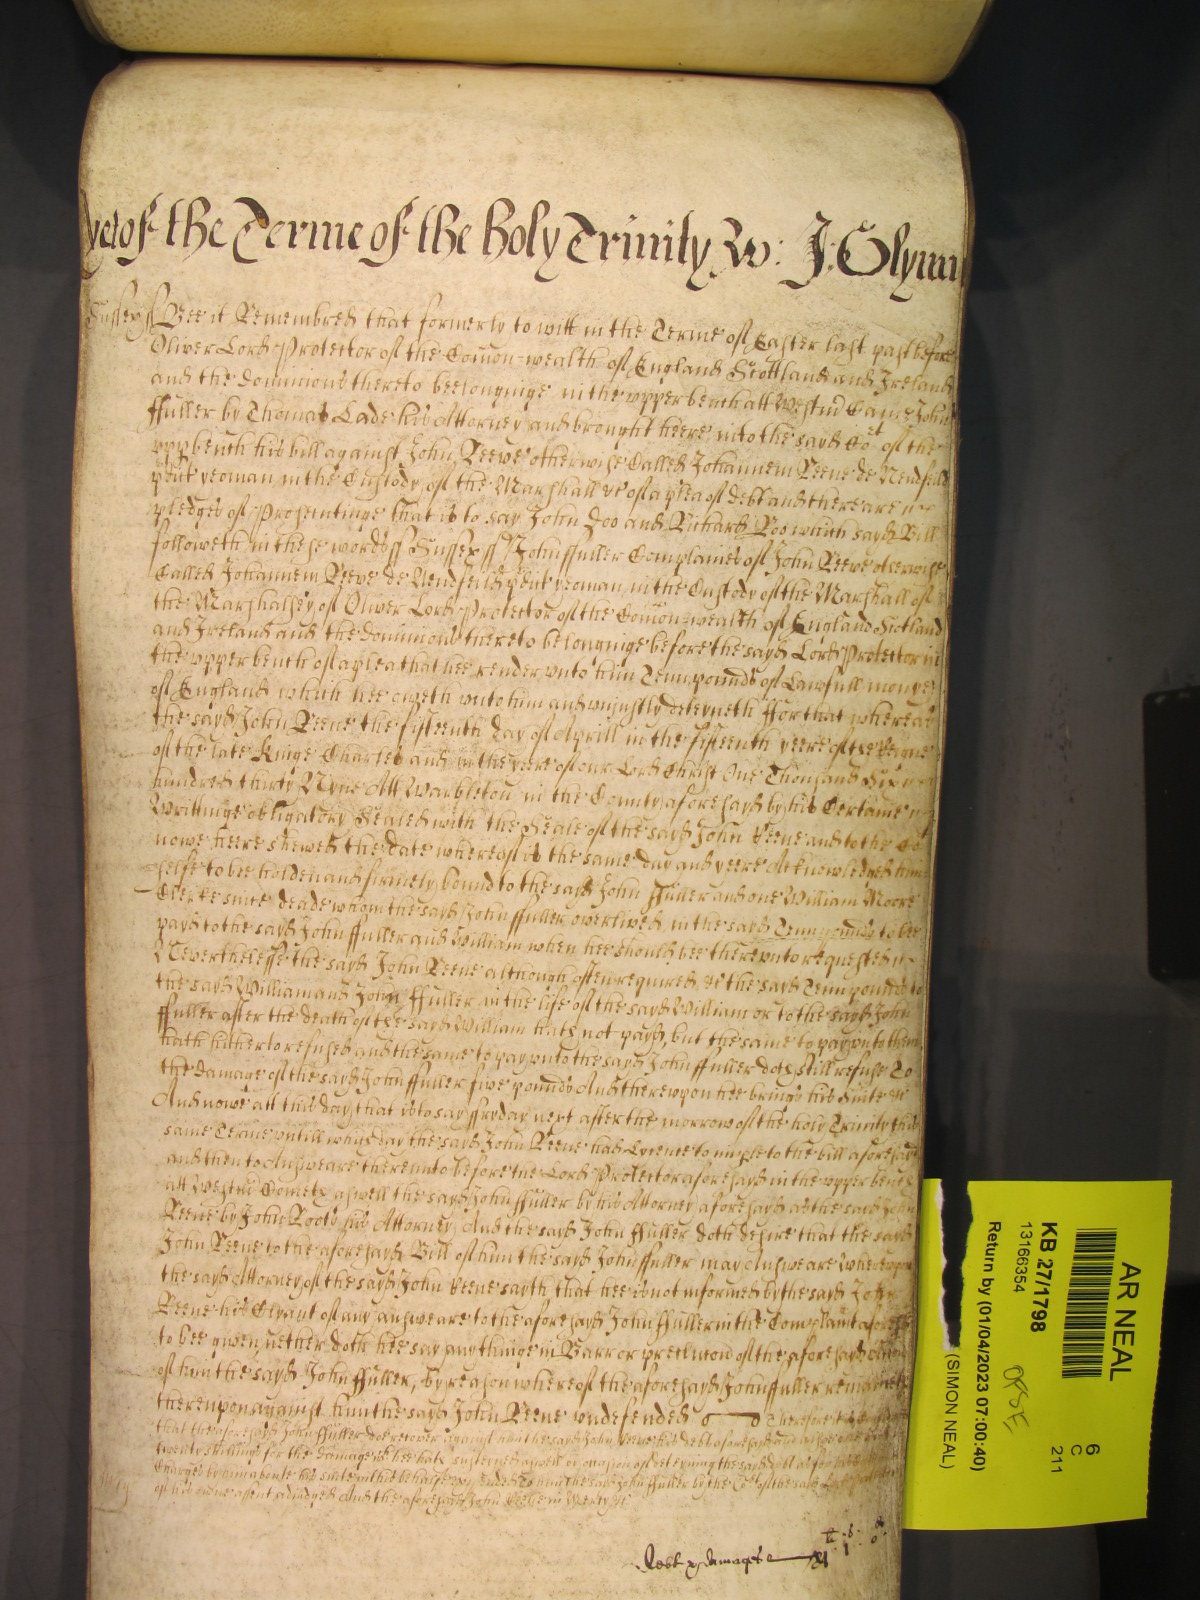 yet of the Terme of the holy Trinity W: J: Glynn
Sussex ss Bee it Remembred that formerly to witt in the Terme of Easter last past before
Oliver Lord Protector of the Comon-wealth of England Scottland and Ireland
and the dominions thereto beelonginge in the upper bench att Westmr Came John
ffuller by Thomas Lade his Attorney and brought heere into the sayd Cort of the
upp bench his bill against John Reeve otherwise Called Johannem Reeve de
yeoman in the Custody of the Marshall &c of a plea of debt and there are
pledges of Prosecutinge that is to say John Doo and Richard Roo which sayd Bill
followeth in these words ss Sussex ss John ffuller Complaines of John Reeve otherwise
Called Johannem Reeve de yeoman in the Custody of the Marshall of
the Marshalsey of Oliver Lord Protector of the Comon-wealth of England Scotland
and Ireland and the dominions thereto belonginge before the sayd Lord Protector in
the upper bench of a plea that hee render unto him Tenn pounds of Lawfull money
of England which hee oweth unto him and uniustly deteyneth ffor that whereas
the sayd John Reeve the fifteenth day of Aprill in the fifteenth yeere of the Reigne
of the late Kinge Charles and in the yeere of our Lord Christ One Thousand Six
hundred thirty Nyne Att Warbleton in the County aforesayd by his Certaine
Writtinge obligatory Sealed with the Seale of the sayd John Reeve and to the Co
nowe heere shewed the date whereof is the same day and yeere Acknowledged him
selfe to bee holden and firmely bound to the sayd John ffuller and one William Moore
Clerke since deade whom the sayd John ffuller overlived in the sayd Tenn pounds to bee
payd to the sayd John ffuller and William when hee should bee thereunto requested
Neverthelesse the sayd John Reeve although often required &c the sayd Tenn pounds to
the sayd William and John ffuller in the life of the sayd William or to the sayd John
ffuller after the death of the sayd William hath not payd, but the same to pay unto them
hath hitherto refused and the same to pay unto the sayd John ffuller doth still refuse To
the damage of the sayd John ffuller five pounds And thereupon hee brings his Suite &c
And nowe att this day that is to say ffryday next after the morrow of the holy Trinity this
same Terme untill which day the sayd John Reeve had Lycence to imple to the bill aforesayd
and then to Answeare thereunto before the Lord Protector aforesayd in the upper bench
att Westmr Cometh aswell the sayd John ffuller by his Attorney aforesayd as the sayd John
Reeve by John Roots his Attorney And the sayd John ffuller doth desire that the sayd
John Reeve to the aforesayd Bill of him the sayd John ffuller may Answeare Whereupon
the sayd Attorney of the sayd John Reeve sayth that hee is not informed by the sayd John
Reeve his Clyent of any answeare to the aforesayd John ffuller in the Complaint aforesayd
to bee given nether doth hee say any thinge in Barr or preclusion of the aforesayd
of him the sayd John ffuller, by reason whereof the aforesayd John ffuller remaineth
thereupon against him the sayd John Reeve undefended Therefore it is
that the aforesayd John ffuller doe recover against him the sayd John Reeve his debt aforesayd and
twenty shillings for the damages hee hath susteyned aswell by occasion of deteyning the sayd debt as for his
Charges by him aboute his suite in this behalfe expended To him the sayd John ffuller by the Cort of the sayd Lord
of his owne assent adiudged And the aforesayd John Reeve in Mercy &c
li s d
debt & damages XI I 0
AR NEAL
6
C
211
KB 27/1798
13166354
Return by (01/04/2023 07:00:40)
(SIMON NEAL)